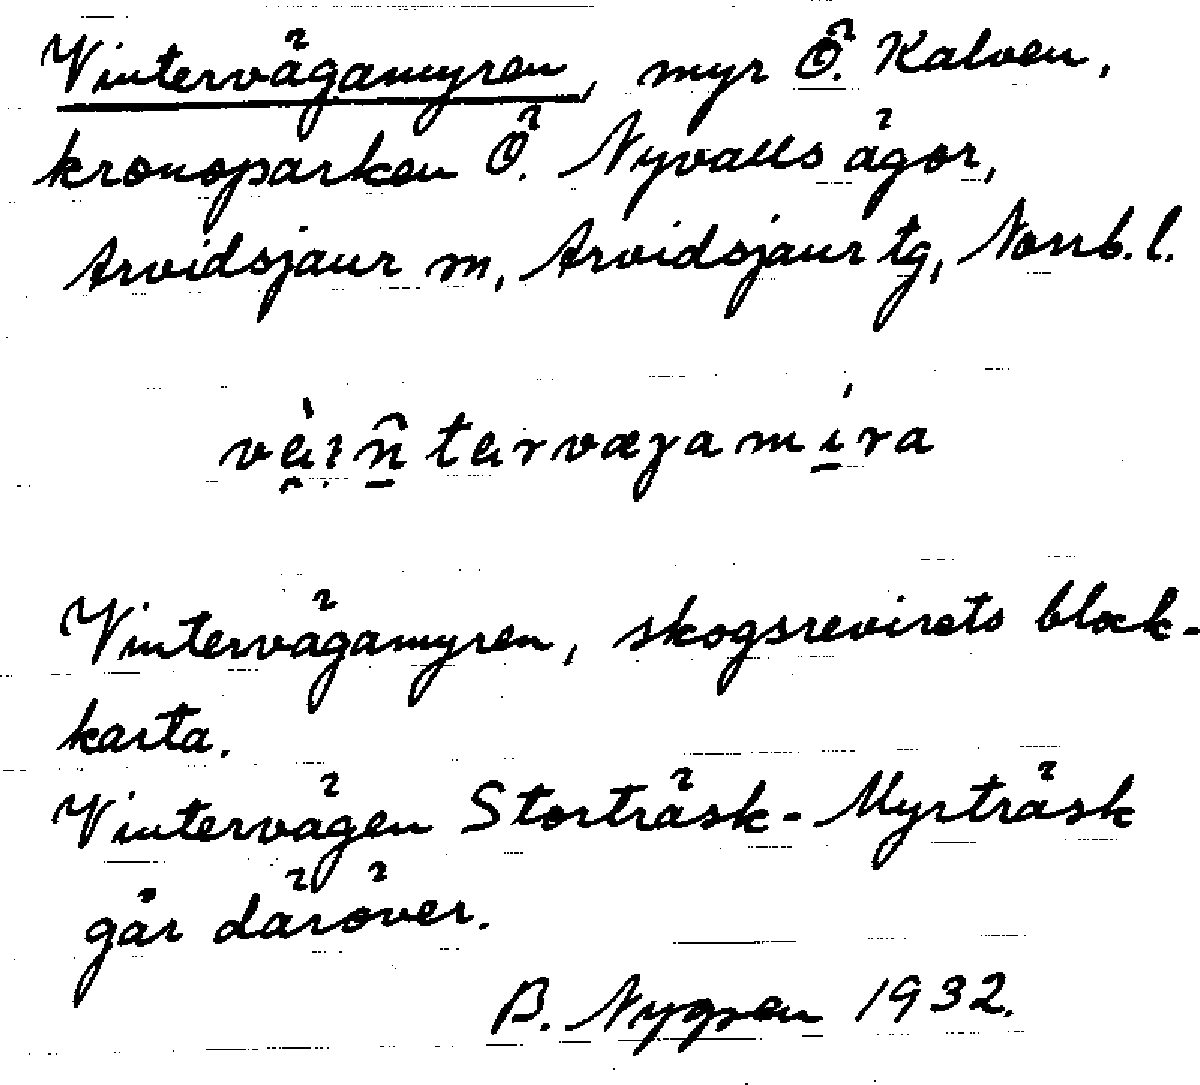 Vintervägamyren, myr Ö. Kalven,
kronoparken Ö. Nyvalls ägor,
Arvidsjaur m, Arvidsjaur tg, Norrb. l.
Vintervägamyren, skogsrevirets block-
karta.
Vintervägen Storträsk - Myrträsk
går däröver.
B. Nygren 1932.